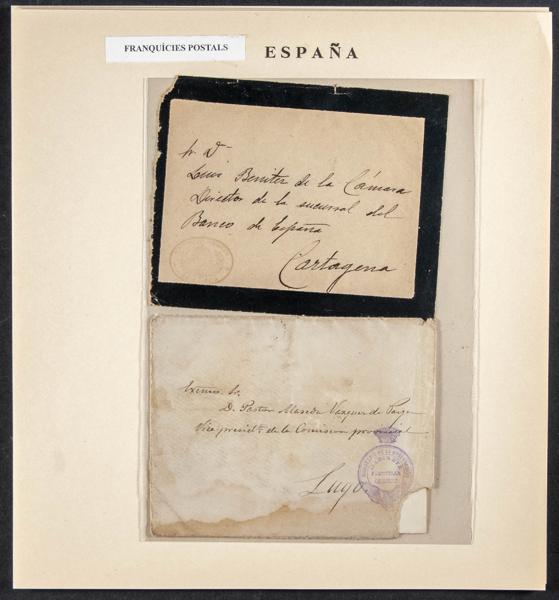 FRANQUÍCIES POSTALS
ESPAÑA
Sr. Dn.
Luis Benitez de la Cámara
Director de la sucursal del
Banco de España
Cartagena
Excmo. Sr.
D. Pastor Maseda Vazquez de Parga
Vice presidte. de la Comision provincial
Lugo.